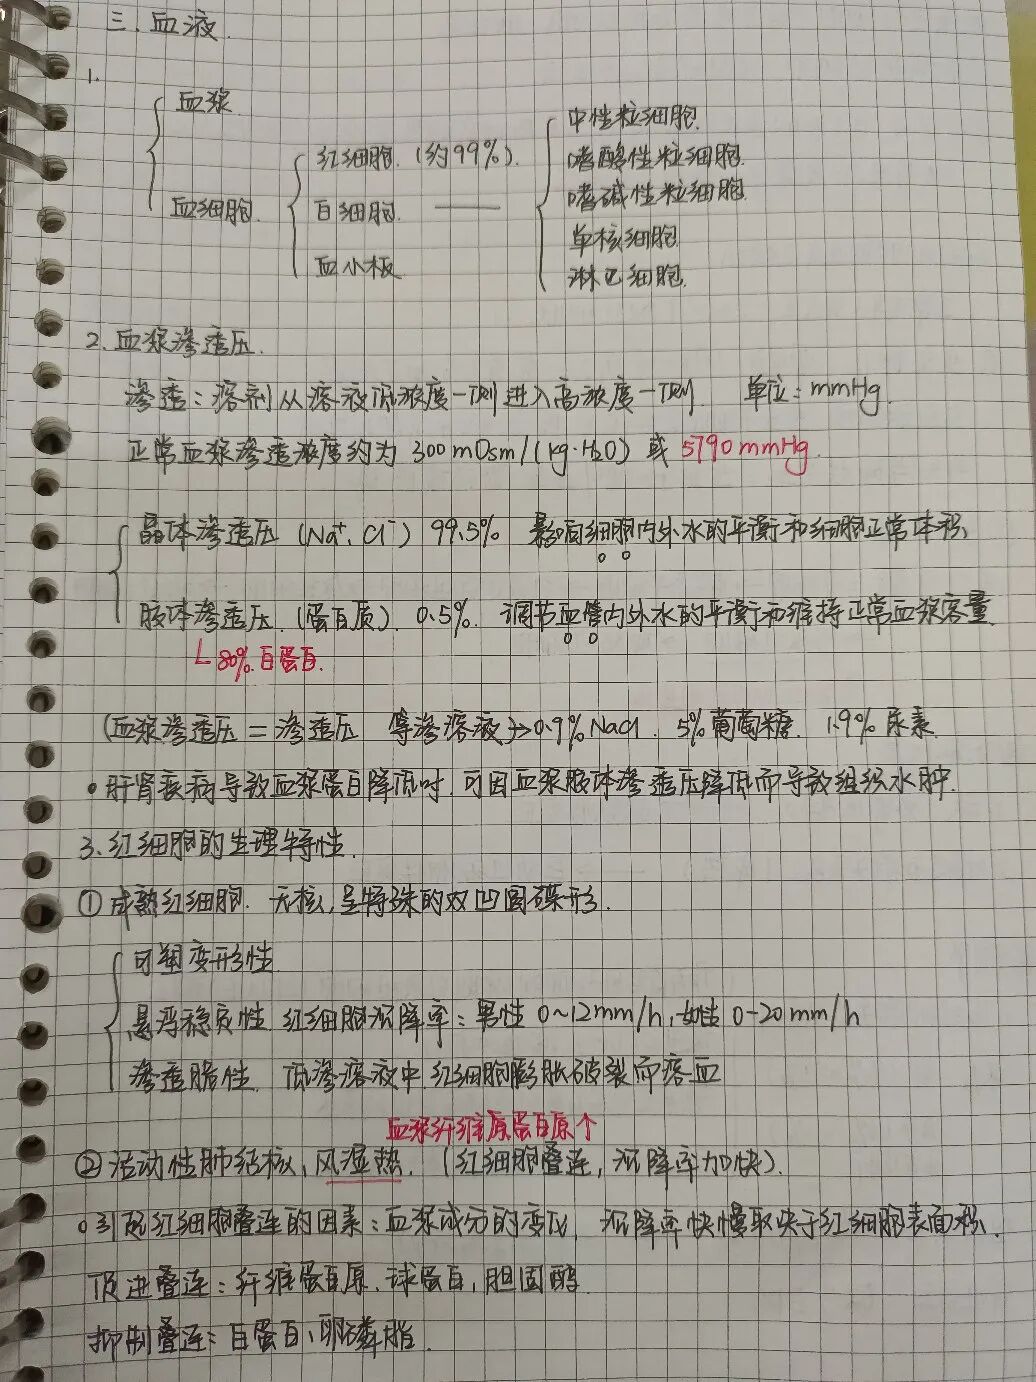 三.血液.
1.
血浆.
血细胞.
红细胞.(约99%).
白细胞.
血小板
中性粒细胞.
嗜酸性粒细胞.
嗜碱性粒细胞.
单核细胞.
淋巴细胞.
2.血浆渗透压.
渗透:溶剂从溶液低浓度一侧进入高浓度一侧 单位:mmHg.
正常血浆渗透浓度约为300mOsm/(kg·H₂O)或5790mmHg.
晶体渗透压(Na⁺、Cl⁻)99.5% 影响细胞内外水的平衡和细胞正常体积.
胶体渗透压.(蛋白质).0.5%.调节血管内外水的平衡和维持正常血浆容量.
80%.白蛋白.
(血浆渗透压=渗透压 等渗溶液)→0.9%NaCl.5%葡萄糖.1.9%尿素.
•肝肾疾病导致血浆蛋白降低时.可因血浆胶体渗透压降低而导致组织水肿.
3.红细胞的生理特性.
①成熟红细胞.无核,呈特殊的双凹圆碟形.
可塑变形性.
悬浮稳定性.红细胞沉降率:男性0~12mm/h,女性0-20mm/h
渗透脆性.低渗溶液中红细胞膨胀破裂而溶血
血浆纤维原蛋白原个
②活动性肺结核、风湿热.(红细胞叠连,沉降率加快).
o引起红细胞叠连的因素:血浆成分的变化,沉降率快慢取决于红细胞表面积.
促进叠连:纤维蛋白原、球蛋白,胆固醇.
抑制叠连:白蛋白、卵磷脂.